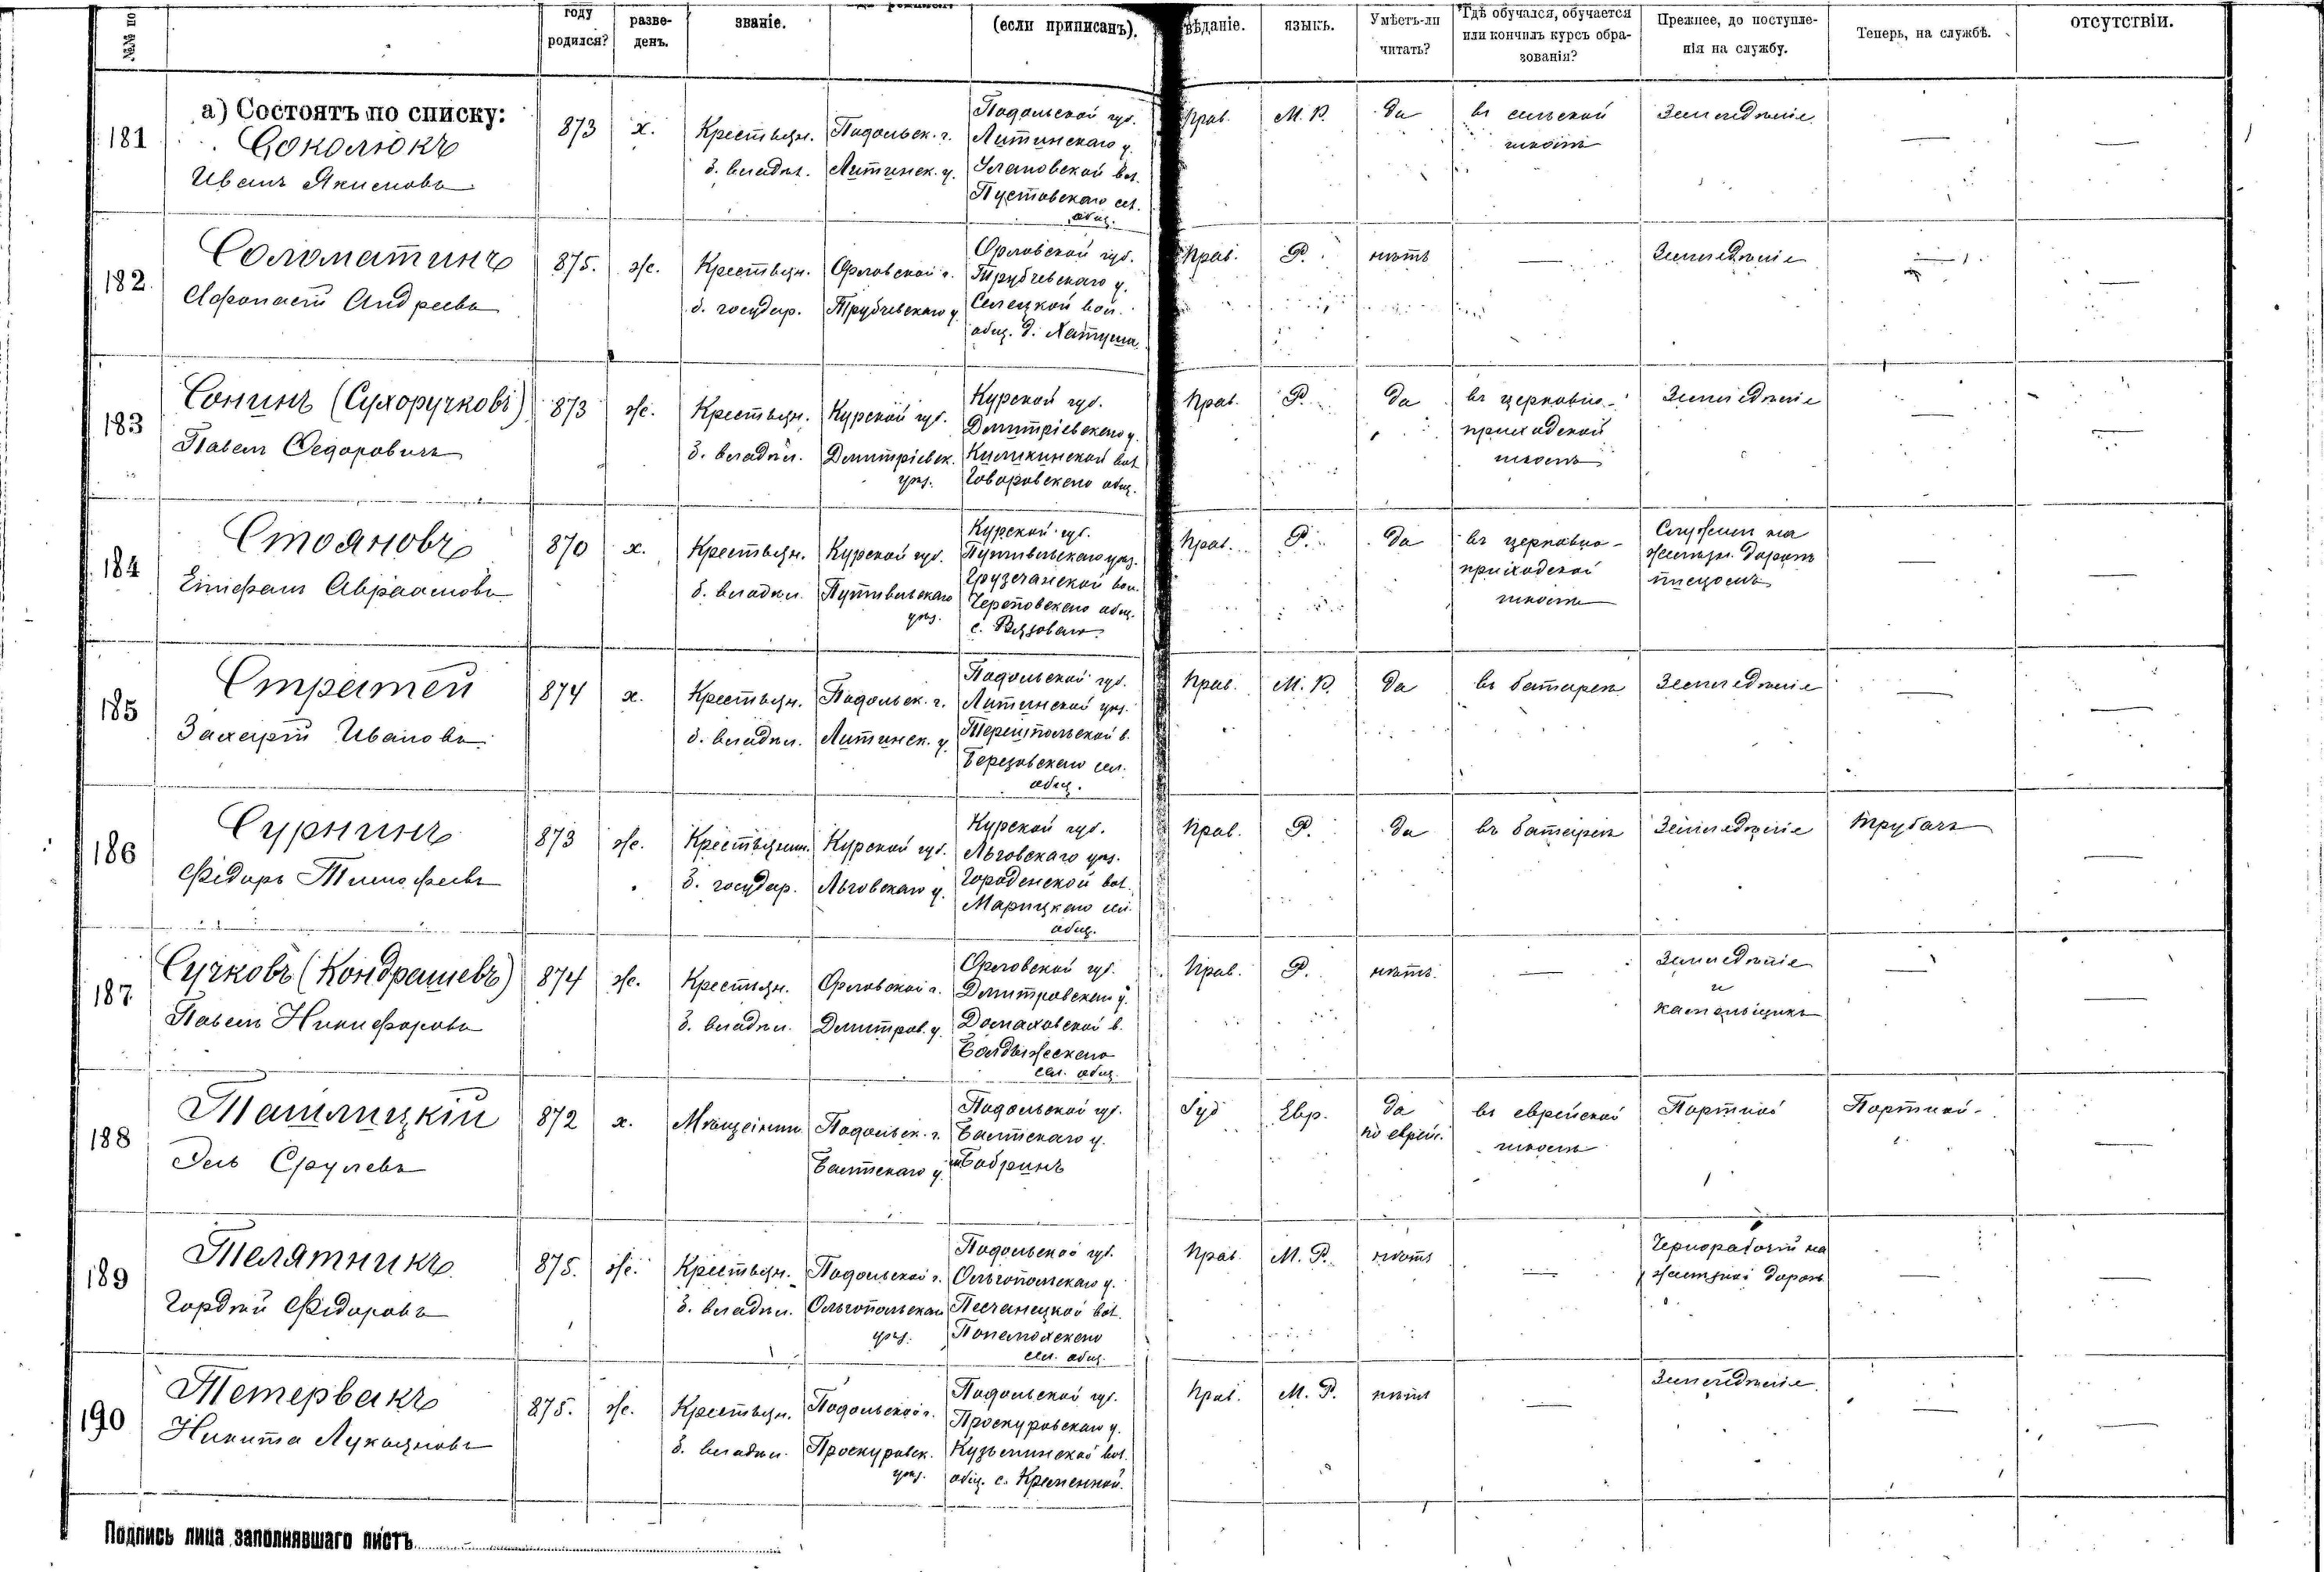 №№ по
году
родился?
разве-
денъ.
званіе.
(если приписанъ).
вѣданіе.
языкъ.
Умѣетъ-ли
читать?
Гдѣ обучался, обучается
или кончилъ курсъ обра-
зованія?
Прежнее, до поступле-
нія на службу.
Теперь, на службѣ.
отсутствіи.
а) Состоятъ по списку:
181
Соколюкъ
Иванъ Якимовъ
873
х.
Крестьян.
б. владѣл.
Подольск. г.
Литинск. у.
Подольской губ.
Литинскаго у.
Улановской вол.
Пустовскаго сел.
общ.
Прав.
М. Р.
да
въ сельской
школѣ
Земледѣліе
—
—
182
Соломатинъ
Афонасій Андреевъ
875.
ж.
Крестьян.
б. государ.
Орловской г.
Трубчевскаго у.
Орловской губ.
Трубчевскаго у.
Селецкой вол.
общ. д. Хатуша
Прав.
Р.
нѣтъ
—
Земледѣліе
—
—
183
Сонинъ (Сухоручковъ)
Павелъ Федоровичъ
873
ж.
Крестьян.
б. владѣл.
Курской губ.
Дмитріевск.
уѣз.
Курской губ.
Дмитріевскаго у.
Киликинской вол.
Говоровскаго общ.
Прав.
Р.
да
въ церковно-
приходской
школѣ
Земледѣліе
—
—
184
Стояновъ
Епифанъ Авраамовъ
870
х.
Крестьян.
б. владѣл.
Курской губ.
Путивльскаго
уѣз.
Курской губ.
Путивльскаго уѣз.
Грузчанской вол.
Череповскаго общ.
с. Вязоваго
Прав.
Р.
да
въ церковно-
приходской
школѣ
Служилъ на
желѣзн. дорогѣ
писцомъ
—
—
185
Стратей
Захарій Ивановъ
874
х.
Крестьян.
б. владѣл.
Подольск. г.
Литинск. у.
Подольской губ.
Литинской уѣз.
Терешпольской в.
Березовскаго сел.
общ.
Прав.
М. Р.
да
въ батареѣ
Земледѣліе
—
—
186
Сурнинъ
Ѳедоръ Тимофеевъ
873
ж.
Крестьянин.
б. государ.
Курской губ.
Льговскаго у.
Курской губ.
Льговскаго уѣз.
Городенской вол.
Марицкаго сел.
общ.
Прав.
Р.
да
въ батареѣ
Земледѣліе
Трубачъ
—
187
Сучковъ (Кондрашевъ)
Павелъ Никифоровъ
874
ж.
Крестьян.
б. владѣл.
Орловской г.
Дмитров. у.
Орловской губ.
Дмитровскаго у.
Домаховской в.
Болдыжскаго
сел. общ.
Прав.
Р.
нѣтъ
—
Земледѣліе
и
каменьщикъ
—
—
188
Ташлицкій
Эль Срулевъ
872
х.
Мѣщанин.
Подольск. г.
Балтскаго у.
Подольской губ.
Балтскаго у.
м. Бобринъ
Іуд
Евр.
да
по еврей.
въ еврейской
школѣ
Портной
Портной
—
189
Телятникъ
Гордѣй Ѳедоровъ
875.
ж.
Крестьян.
б. владѣл.
Подольской г.
Ольгопольскаго
уѣз.
Подольской губ.
Ольгопольскаго у.
Песчанецкой вол.
сел. общ.
Прав.
М. Р.
нѣтъ
—
Чернорабочій на
желѣзной дорогѣ
—
—
190
Тетервакъ
Никита Лукьяновъ
875.
ж.
Крестьян.
б. владѣл.
Подольской г.
Проскуровск.
уѣз.
Подольской губ.
Проскуровскаго у.
Кузьминской вол.
общ. с. Кременной.
Прав.
М. Р.
нѣтъ
—
Земледѣліе
—
—
Подпись лица заполнявшаго листъ